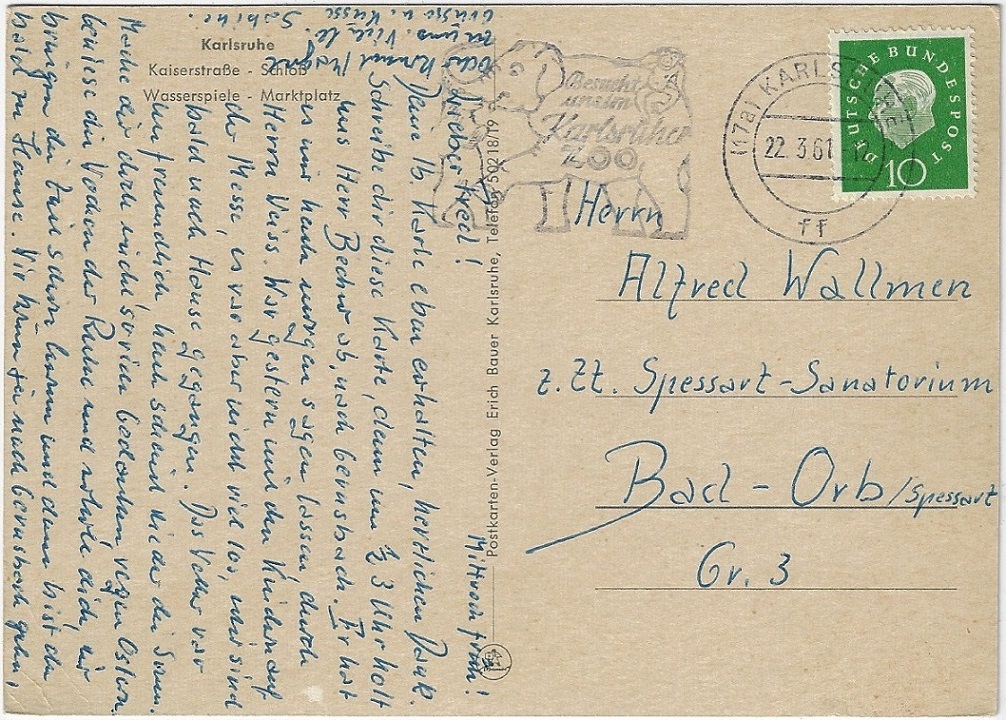 Karlsruhe
Kaiserstraße - Schloß
Wasserspiele - Marktplatz
Mittwoch früh!
Lieber Fred!
Deine 16. Karte eben erhalten, herzlichen Dank.
Schreibe dir diese Karte, denn um ½ 3 Uhr holt
uns Herr Becher ab, nach Gernsbach. Er hat
es mir heute morgen sagen lassen, durch
Herrn Weiss. War gestern mit den Kindern auf
der Messe, es war aber nicht viel los, und sind
bald nach Hause gegangen. Das Wetter war
unfreundlich, heute scheint wieder die Sonne.
Mache dir doch nicht so viele Gedanken wegen Ostern,
bringen die Zeit schon herum und dann bist du
bald zu Hause. Wir können ja nach Gernsbach gehen,
zu uns. Viele
Grüsse u. Küsse
Sabine.
Besucht
unsern
Karlsruher
ZOO
(17a) KARLSRUHE
22.3.61
ff
DEUTSCHE BUNDESPOST
10
Herrn
Alfred Wallmen
z. Zt. Spessart-Sanatorium
Bad-Orb/Spessart
Gr. 3
Postkarten-Verlag Erich Bauer Karlsruhe, Telefon 50218/19